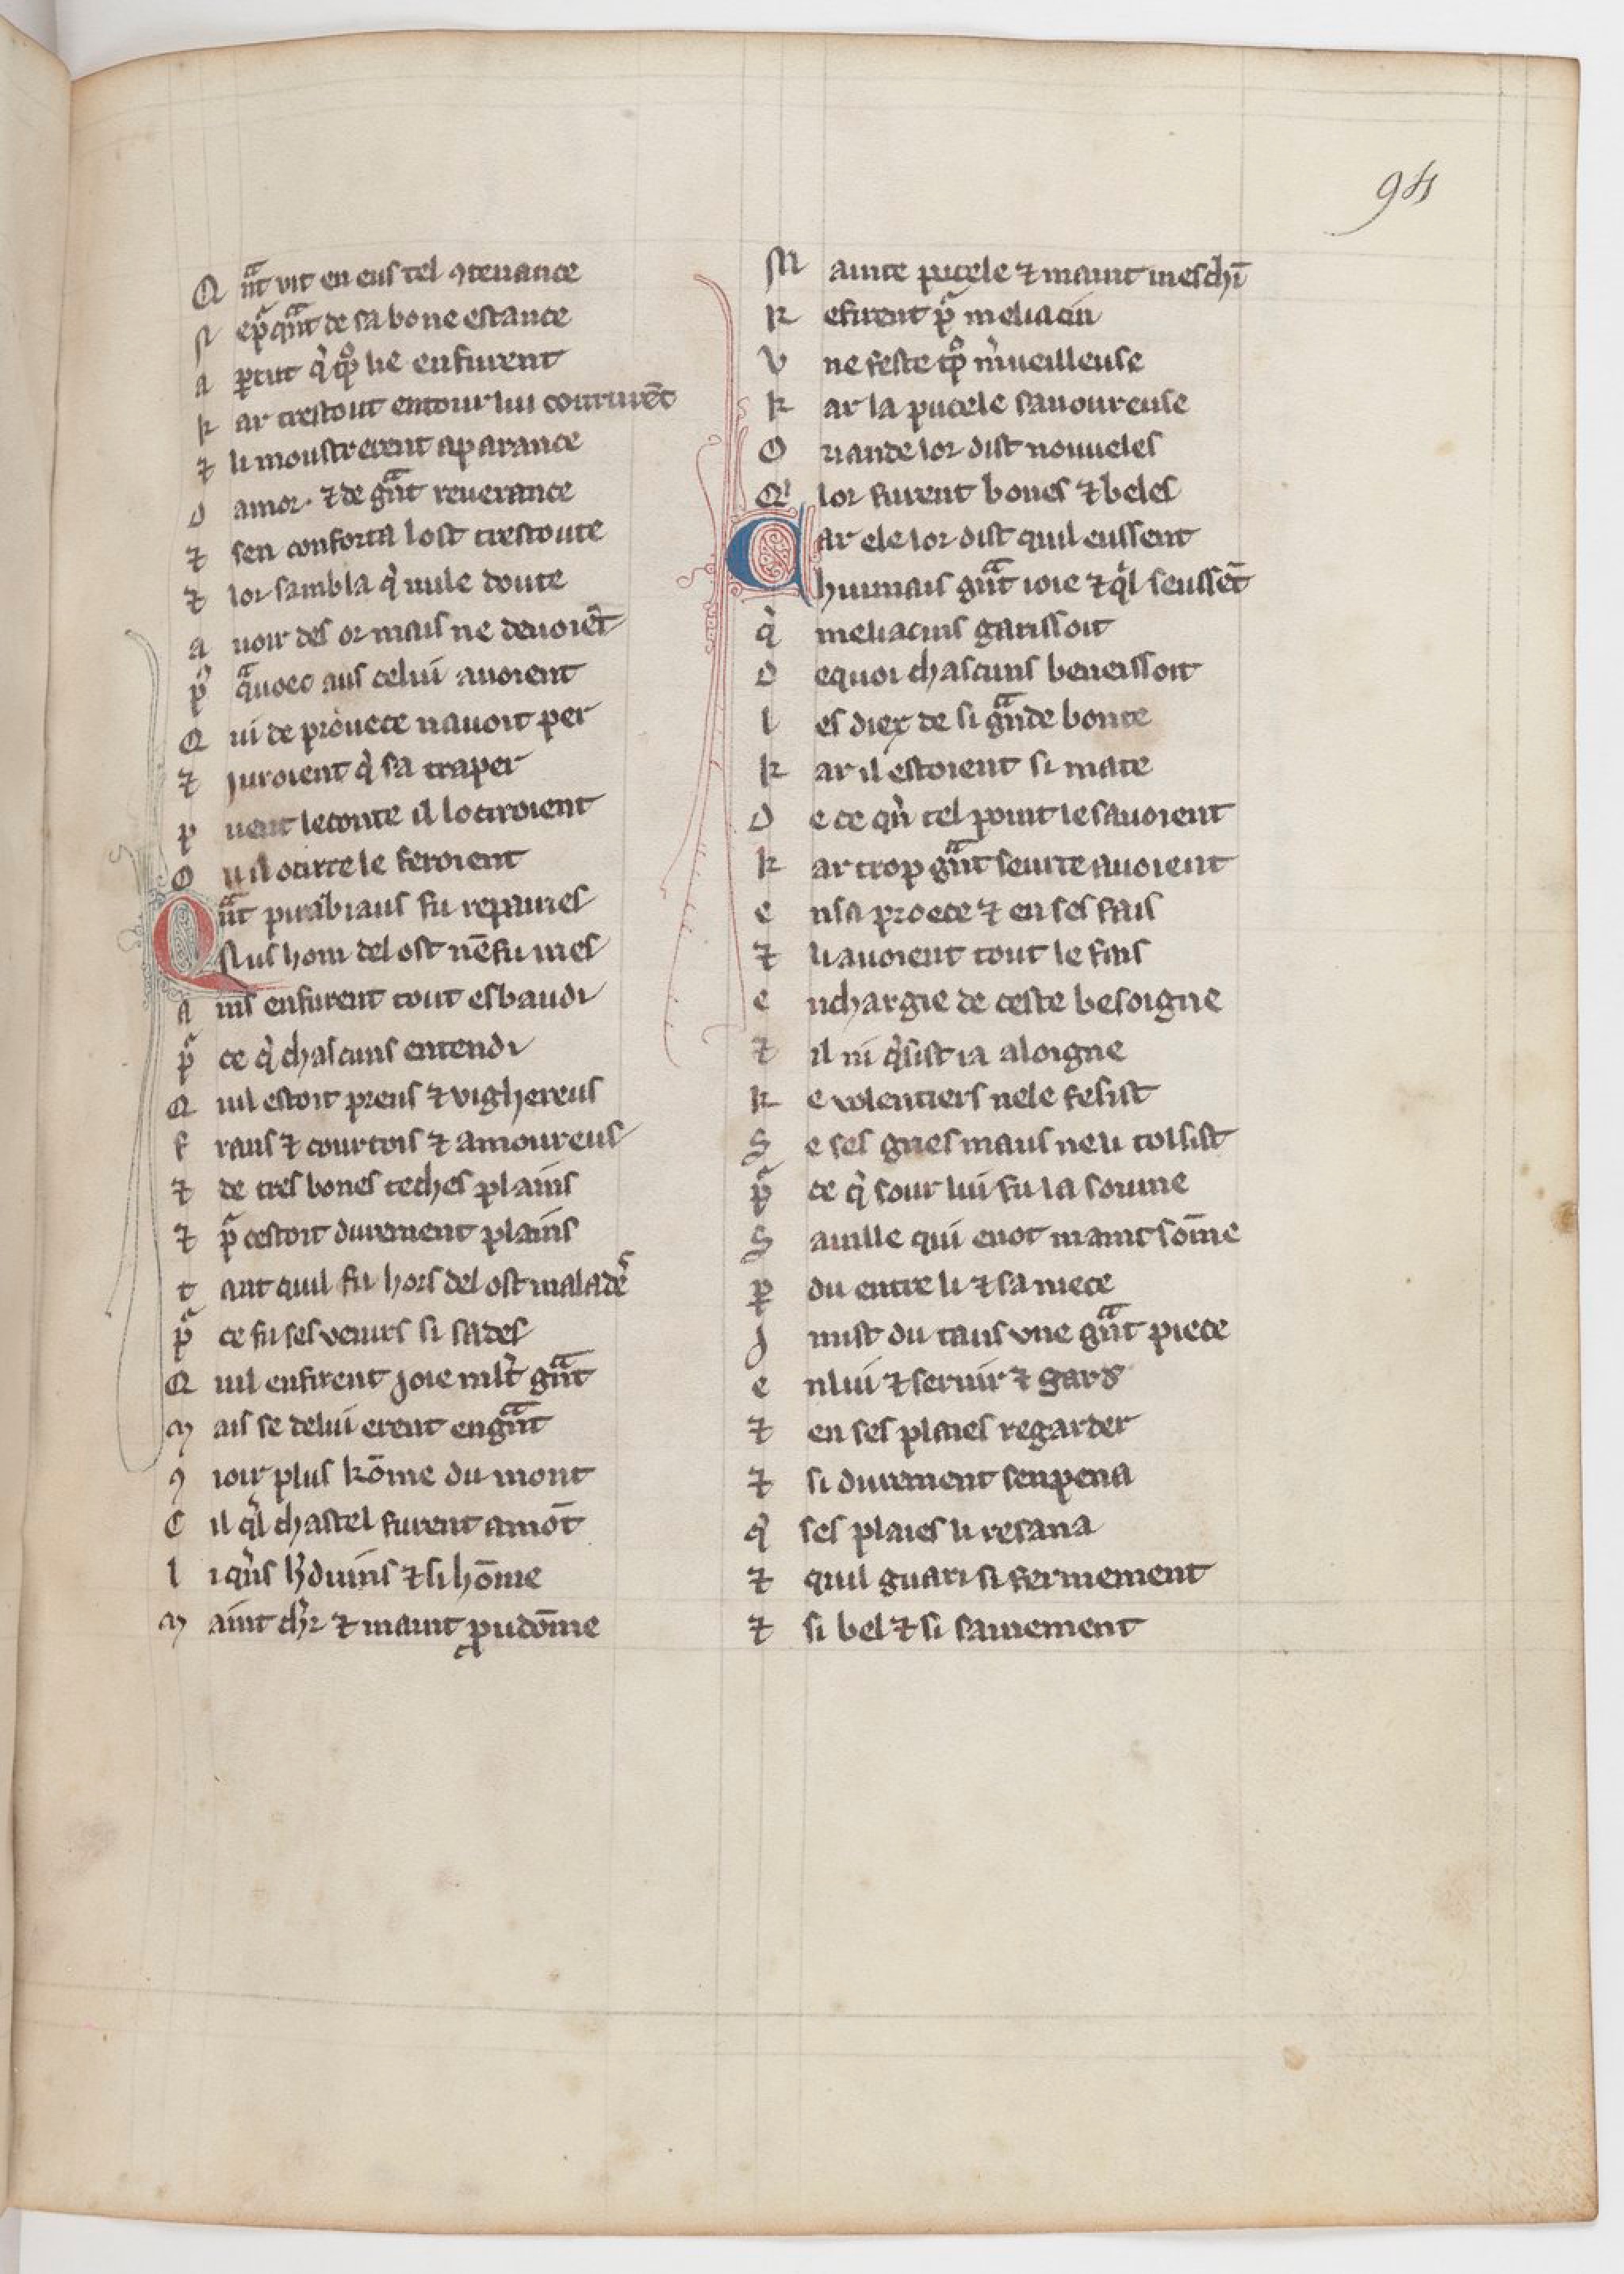 94
Q nͣt vit en eus tel ꝯtenance
N epͬ qͣnt de sa bone estance
a ꝑcut q̓ tͦp lie enfurent
k ar trestout entour lui coururēt
⁊ li moustrerent aparance
D amor. ⁊ de gͣnt reuerance
⁊ sen conforta lost trestoute
⁊ lor sambla q̓ nule doute
a uoir des or mais ne deuoiēt
pͬ qͣuoec aus celui auoient
Q ui de prouece nauoit per
⁊ juroient q̓ sa traper
p uent le conte il lociroient
O u il ocirre le feroient
Qͣnt pirabiaus fu repairies
Nus hom del ost nē fu iries
A ins enfurent tout esbaudi
pͬ ce q̓ chascuns entendi
Q uil estoit preus ⁊ vighereus
f rans ⁊ courtois ⁊ amoureus
⁊ de tres bones teches plains
⁊ pͬ cestoit durement plains
t ant quil fu hors del ost malades
pͬ ce fu ses venirs si sades
Q uil enfirent joie ml̓t gͣnt
m ais se de lui erent en gͣnt
ꝯ ioir plus kōme du mont
C il qͥl chastel furent amōt
l i q̓ns hᷣduins ⁊ si hōme
m aint chͬr ⁊ maint ꝓudōme
M ainte pucele ⁊ maint meschī
R efirent pͬ meliacin
V ne feste tͦp m̓ueilleuse
k ar la pucele sauoureuse
O riande lor dist nouueles
Qͥ lor furent bones ⁊ beles
Car ele lor dist quil eussent
huimais gͣnt ioie ⁊ qͥl seussēt
q̓ meliacins garissoit
D equoi chascuns beneissoit
l es diex de si gͣnde bonte
k ar il estoient si mate
D e ce qu̓ tel point le sauoient
k ar trop gͣnt seurte auoient
e n sa proece ⁊ en ses fais
⁊ li auoient tout le fais
e nchargie de ceste besoigne
⁊ il ni q̓sist ia aloigne
k e volentiers nele fesist
S e ses gries maus neli tolsist
pͬ ce q̓ sour lui fu la soume
S auille qui enot maint sōme
ꝑ du entre li ⁊ sa niece
J mist du tans vne gͣnt piece
e nlui ⁊ seruir ⁊ gard᷑
⁊ en ses plaies regarder
⁊ si durement senpena
q̓ ses plaies li resana
⁊ quil guari si fermement
⁊ si bel ⁊ si sainement